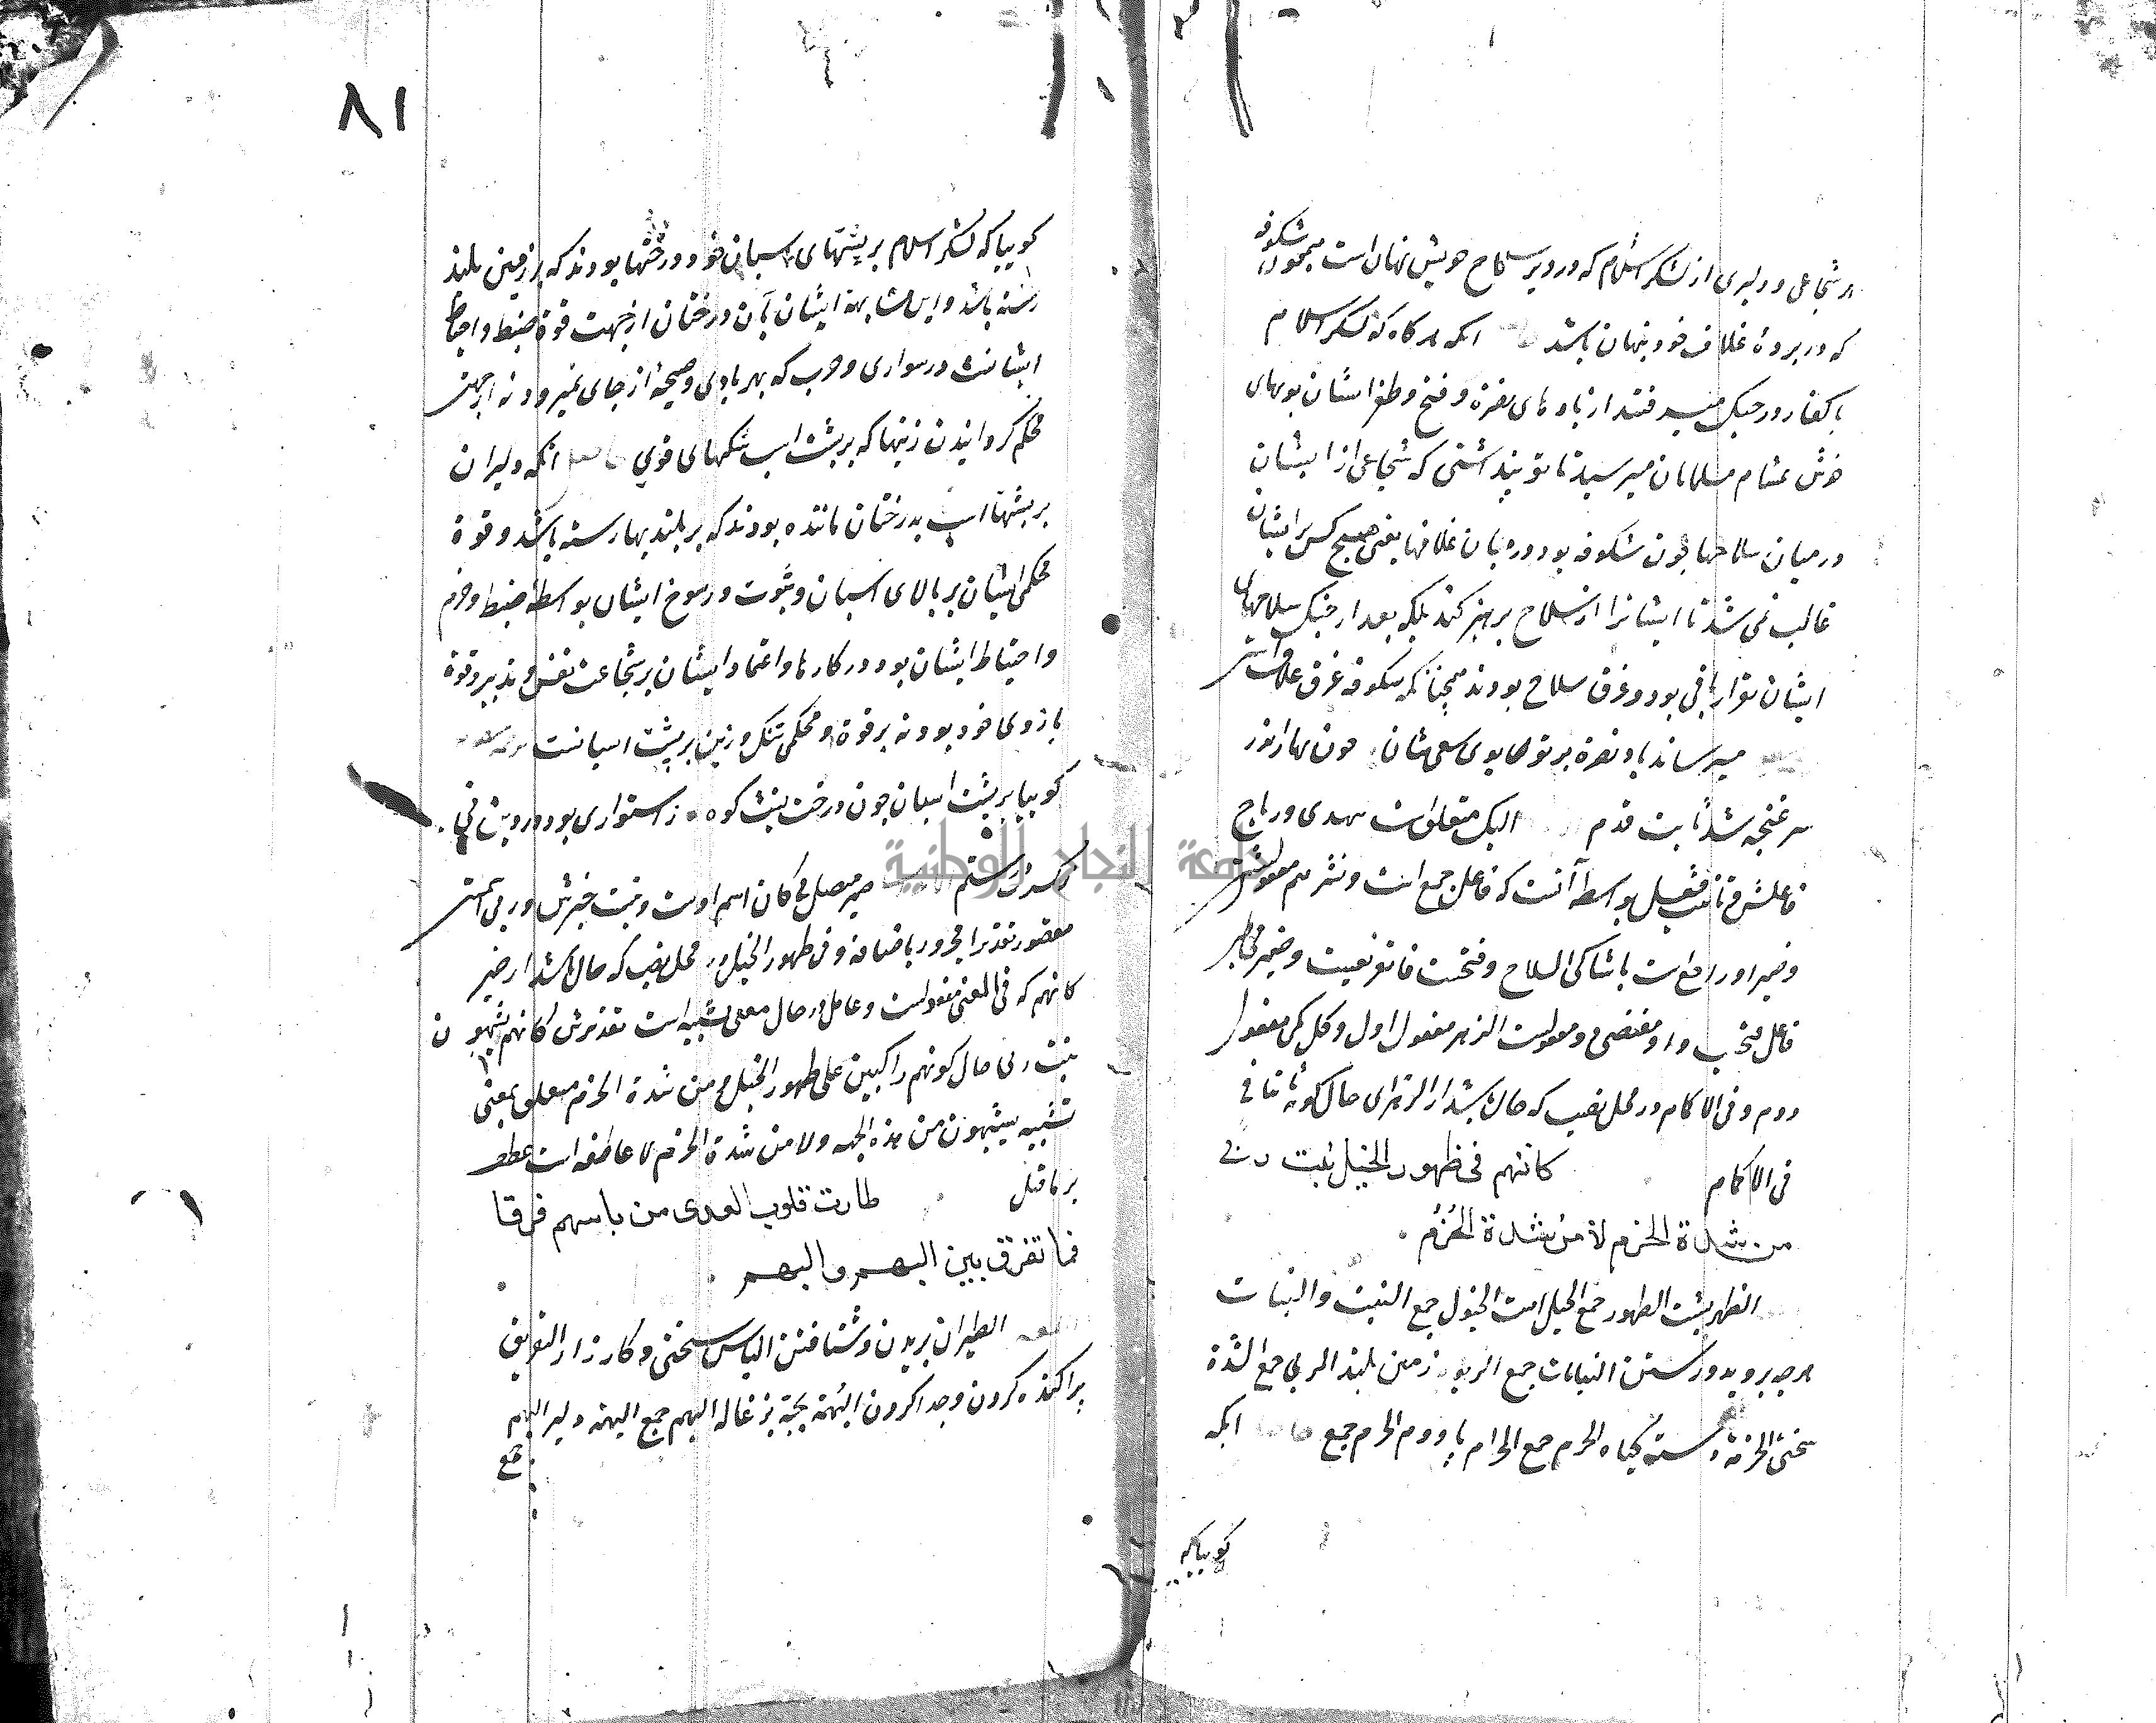 هر شجاعی و دلیری از لشکر اسلام که در زیر سلاح خویش نهان است همچو شکوفه
که در پردهٔ غلاف خود پنهان باشد انکه هرگاه که لشکر اسلام
با کفار در جنک میرفتند از بادهای نصرة و فتح و ظفر ایشان بویهای
خوش بمشام مسلمانان میرسید تا تو پنداشتی که شجاعی از ایشان
در میان سلاحها چون شکوفه بود در میان غلافها یعنی هیچ کس بر ایشان
غالب نمی شد تا ایشانرا از سلاح برهنه کند بلکه بعد از جنک سلاحهای
ایشان برقرار باقی بود و غرق سلاح بودند همچنانکه شکوفه غرق غلاف است
میرساند باد نصرة بر تو هر بوی سعی شان چون بهار اندر
سر غنچه شد ثابت قدم الیک متعلق است بتهدی و ریاح
فاعلش و تانیث فعل بواسطه آنست که فاعل جمع است و نشرهم مفعولش
و ضمیر او راجع است با شاکی السلاح و فتحسب فا تفریعیت و ضمیر مخاطب
فاعل فتحسب و او مقتضی دو مفعولست الزهر مفعول اول و کل کمی مفعول
دوم و فی الاکمام در محل نصب که حال باشد از الزهر ای حال کونه ثابتا فی
فی الاکمام كانهم فى ظهور الخيل نبت ربى
من شدة الحزم لا من شدة الحُزُم
الظهر پشت الظهور جمع الخیل اسب الخیول جمع النبت و النبات
هرچه بروید و رستن النباتات جمع الربوة زمین بلند الربی جمع الشدة
سختی الحزمة دسته کیاه الحزم جمع الحزام الحزم جمع انکه
کویا که
۸۱
کویا که لشکر اسلام بر پشتهای اسبان خود درختها بودند که بر زمین بلند
رسته باشد و این مشابهة ایشان بآن درختان از جهت قوة ضبط و احتیاط
ایشانست در سواری و حرب که بهر بادی و صیحهٔ از جای نمیرود نه از جهت
محکم کردانیدن زینها که بر پشت اسب تنکهای قوی حاصل انکه دلیران
بر پشتهای اسب بدرختان ماننده بودند که بر بلندیها رسته باشد و قوة
محکمی ایشان بر بالای اسبان و ثبوت و رسوخ ایشان بواسطه ضبط و حزم
و احتیاط ایشان بود در کارها و اعتماد ایشان بر شجاعت نفس و تدبیر و قوة
بازوی خود بود نه بر قوة و محکمی تنک و زین بر پشت اسبانست
کویا بر پشت اسبان چون درخت پشت کوه ز استواری بود در وی نی
ضمیر متصل در کان اسم اوست و نبت خبرش و ربی است
مقصور تقدیرا مجرور باضافه و فی ظهور الخیل در محل نصب که حال باشد از ضمیر
کانهم که فی المعنی مفعولست و عامل در حال معنی تشبیه است تقدیرش کانهم یشبهون
نبت ربی حال کونهم راکبین علی ظهور الخیل و من شدة الحزم متعلق بمعنی
تشبیه یشبهون من هذه الجهه و لا من شدة الحزم لا عاطفه است عطف
بر ما قبل طارت قلوب العدى من باسهم فرقا
فما تفرق بين البهم والبهم
الطیران پریدن و شتافتن الباس سختی و کارزار التفریق
پراکنده کردن و جدا کردن البهمة بچه بزغاله البهم جمع البهمه دلیر البهم
جمع
جامعة النجاح الوطنية